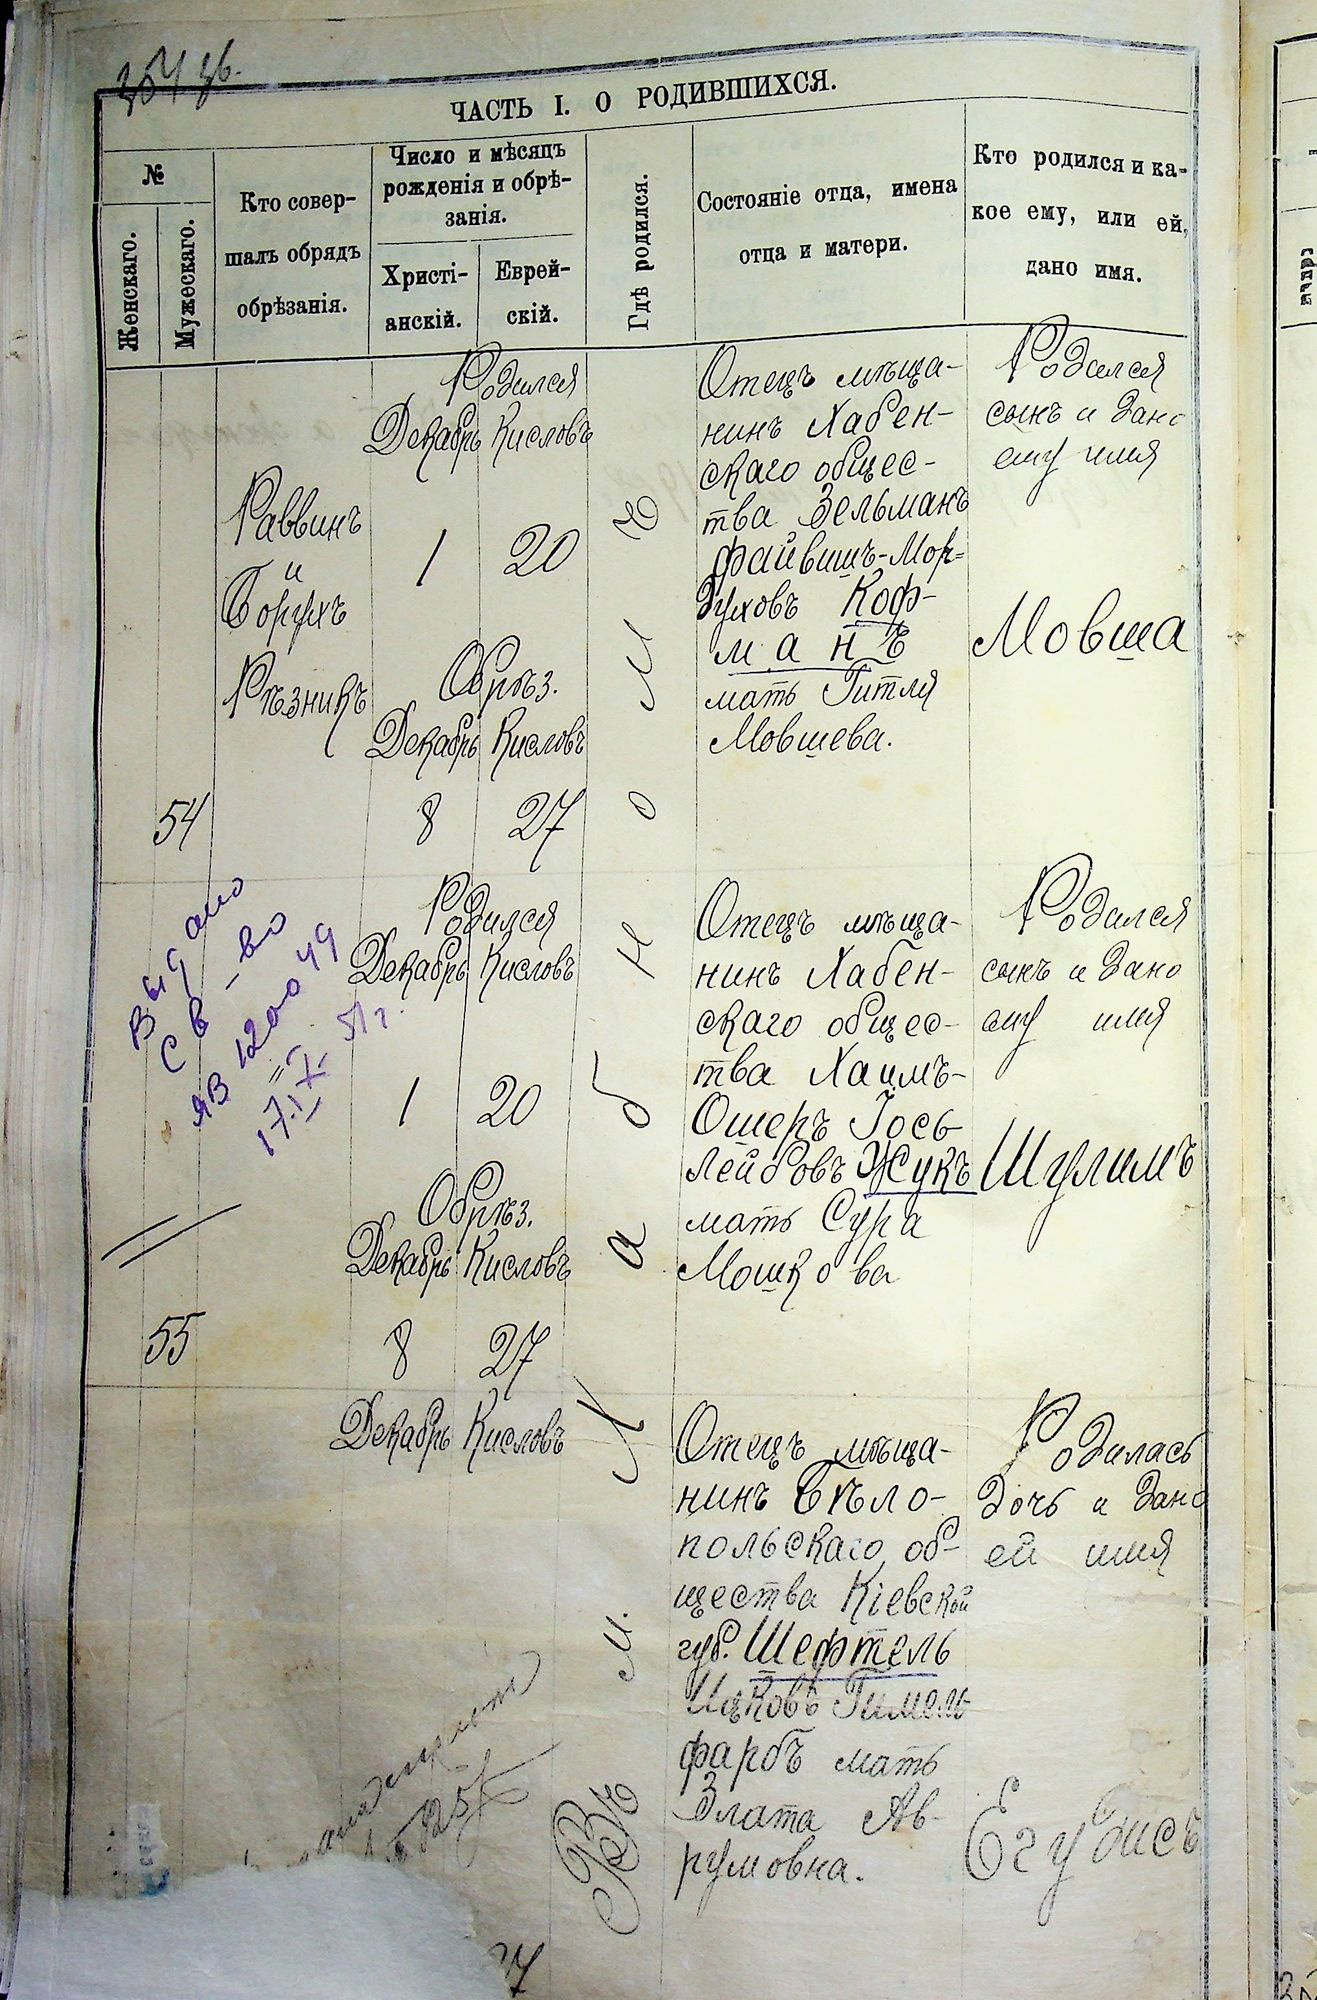 ЧАСТЬ I. О РОДИВШИХСЯ.
№
Женскаго.
Мужескаго.
Кто совер-
шалъ обрядъ
обрѣзанія.
Число и мѣсяцъ
рожденія и обрѣ-
занія.
Христі-
анскій.
Еврей-
скій.
Гдѣ родился.
Состояніе отца, имена
отца и матери.
Кто родился и ка-
кое ему, или ей,
дано имя.
54
Раввинъ
и
Борухъ
Рѣзникъ
Родился
Декабрь Кисловъ
1 20
Обрѣз.
Декабрь Кисловъ
8 27
Въ м. Хабномъ
Отецъ мѣща-
нинъ Хабен-
скаго общес-
тва Зельманъ
Файвишъ-Мор-
духовъ Коф-
манъ
мать Гитля
Мовшева.
Родился
сынъ и дано
ему имя
Мовша
55
Выдано
св-во
ЯВ 120049
17.IX 51 г.
Родился
Декабрь Кисловъ
1 20
Обрѣз.
Декабрь Кисловъ
8 27
Отецъ мѣща-
нинъ Хабен-
скаго общес-
тва Хаимъ-
Ошеръ Іось
Лейбовъ Жукъ
мать Сура
Мошкова
Родился
сынъ и дано
ему имя
Шулимъ
Декабрь Кисловъ
Отецъ мѣща-
нинъ Бѣло-
польскаго об-
щества Кіевской
губ. Шефтель
Ицковъ Гимель
фарбъ мать
Злата Ав-
румовна.
Родилась
дочь и дано
ей имя
Егудисъ